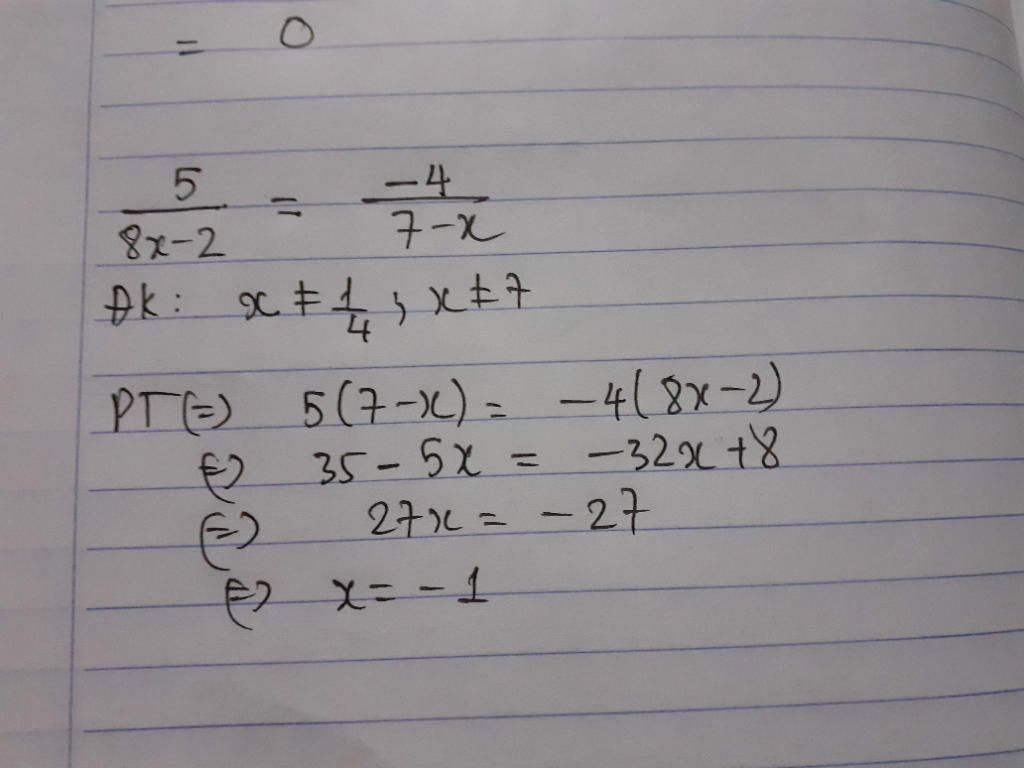 = 0
5/(8x-2) = -4/(7-x)
ĐK: x ≠ 1/4 ; x ≠ 7
PT (=) 5(7-x) = -4(8x-2)
(=) 35 - 5x = -32x + 8
(=) 27x = -27
(=) x = -1